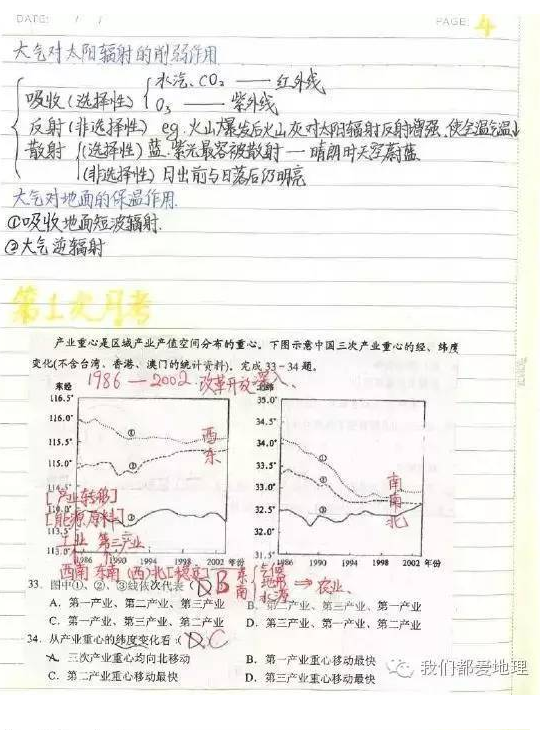 DATE: / /
PAGE: 4
大气对太阳辐射的削弱作用
吸收(选择性) 水汽、CO₂ —— 红外线
O₃ —— 紫外线
反射(非选择性) eg.火山爆发后火山灰对太阳辐射反射增强,使全温气温小
散射 (选择性) 蓝.紫光最容被散射 — 晴朗时天空蔚蓝.
(非选择性) 日出前与日落后仍明亮
大气对地面的保温作用.
①吸收地面短波辐射.
②大气逆辐射
第1次月考
产业重心是区域产业产值空间分布的重心。下图示意中国三次产业重心的经、纬度
变化(不含台湾、香港、澳门的统计资料)。完成33-34题。
1986 — 2002 改革开放深入、
东经
116.5°
116.0°
115.5°
115.0°
114.5°
113.0°
① ② ③
西
东
1986 1990 1994 1998 2002 年份
北纬
35.0°
34.5°
34.0°
33.5°
33.0°
32.5°
32.0°
31.5°
① ② ③
南
南
北
1986 1990 1994 1998 2002 年份
[产业转移]
[能源原料]
工业 第三产业
西南 东南 (西)北[稳定]
⇒ 农业、
33. 图中①、②、③线依次代表( D B
A. 第一产业、第二产业、第三产业
B. 第二产业、第三产业、第一产业
C. 第一产业、第三产业、第二产业
D. 第三产业、第一产业、第二产业
34. 从产业重心的纬度变化看:( D.C )
A. 三次产业重心均向北移动
B. 第一产业重心移动最快
C. 第二产业重心移动最快
D. 第三产业重心移动最快
我们都爱地理